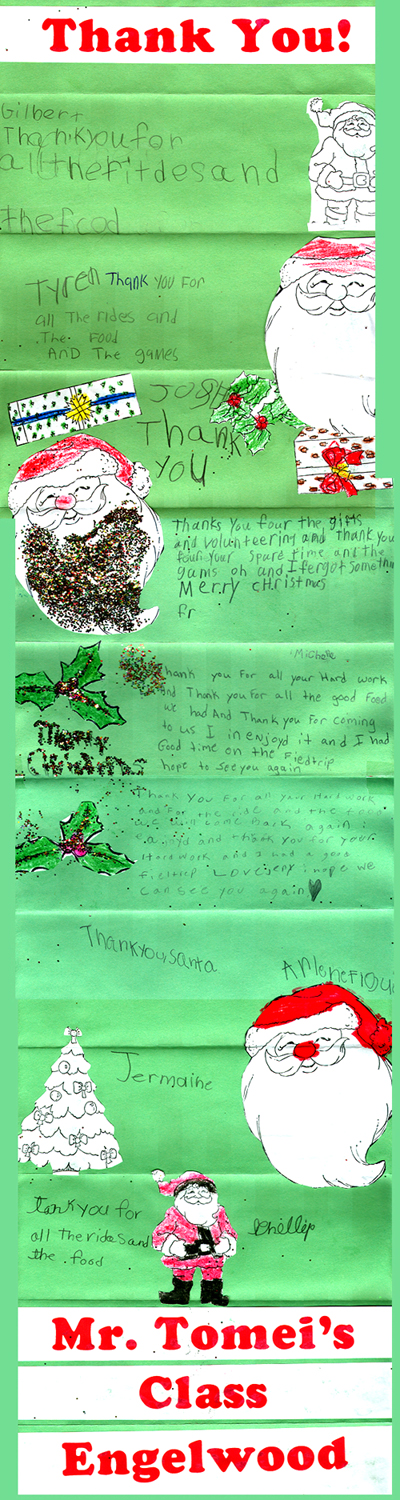 Thank You!
Gilbert
Thankyoufor
alltheritdesand
thefood
Tyren Thank you For
all The rides and
The Food
AND The games
JOSH
Thank
you
Thanks you four the gifts
and volunteering and thank you
four your spare time and the
gams oh and I fergot somethin
Merry christmas
Fr
Michelle
hank you For all your Hard work
and Thank you For all the good Food
we had And Thank you For coming
to us I in enjoyd it and I had
Good time on the Fiedtrip
hope to see you again
Merry
Christmas
Thank You For all your Hard work
and For the ride and the food
can come Back again
and thank you for your
Hard work and I had a good
fieltriep Love jeny i hope we
can see you again
Thankyou,santa
Jermaine
Tankyou for
all theridesand
the food
Phillip
Mr. Tomei's
Class
Engelwood